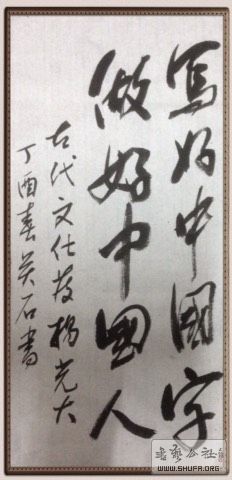 寫好中國字
做好中國人
古代文化發揚光大
丁酉春英石書
書藝公社
WWW.SHUFA.ORG